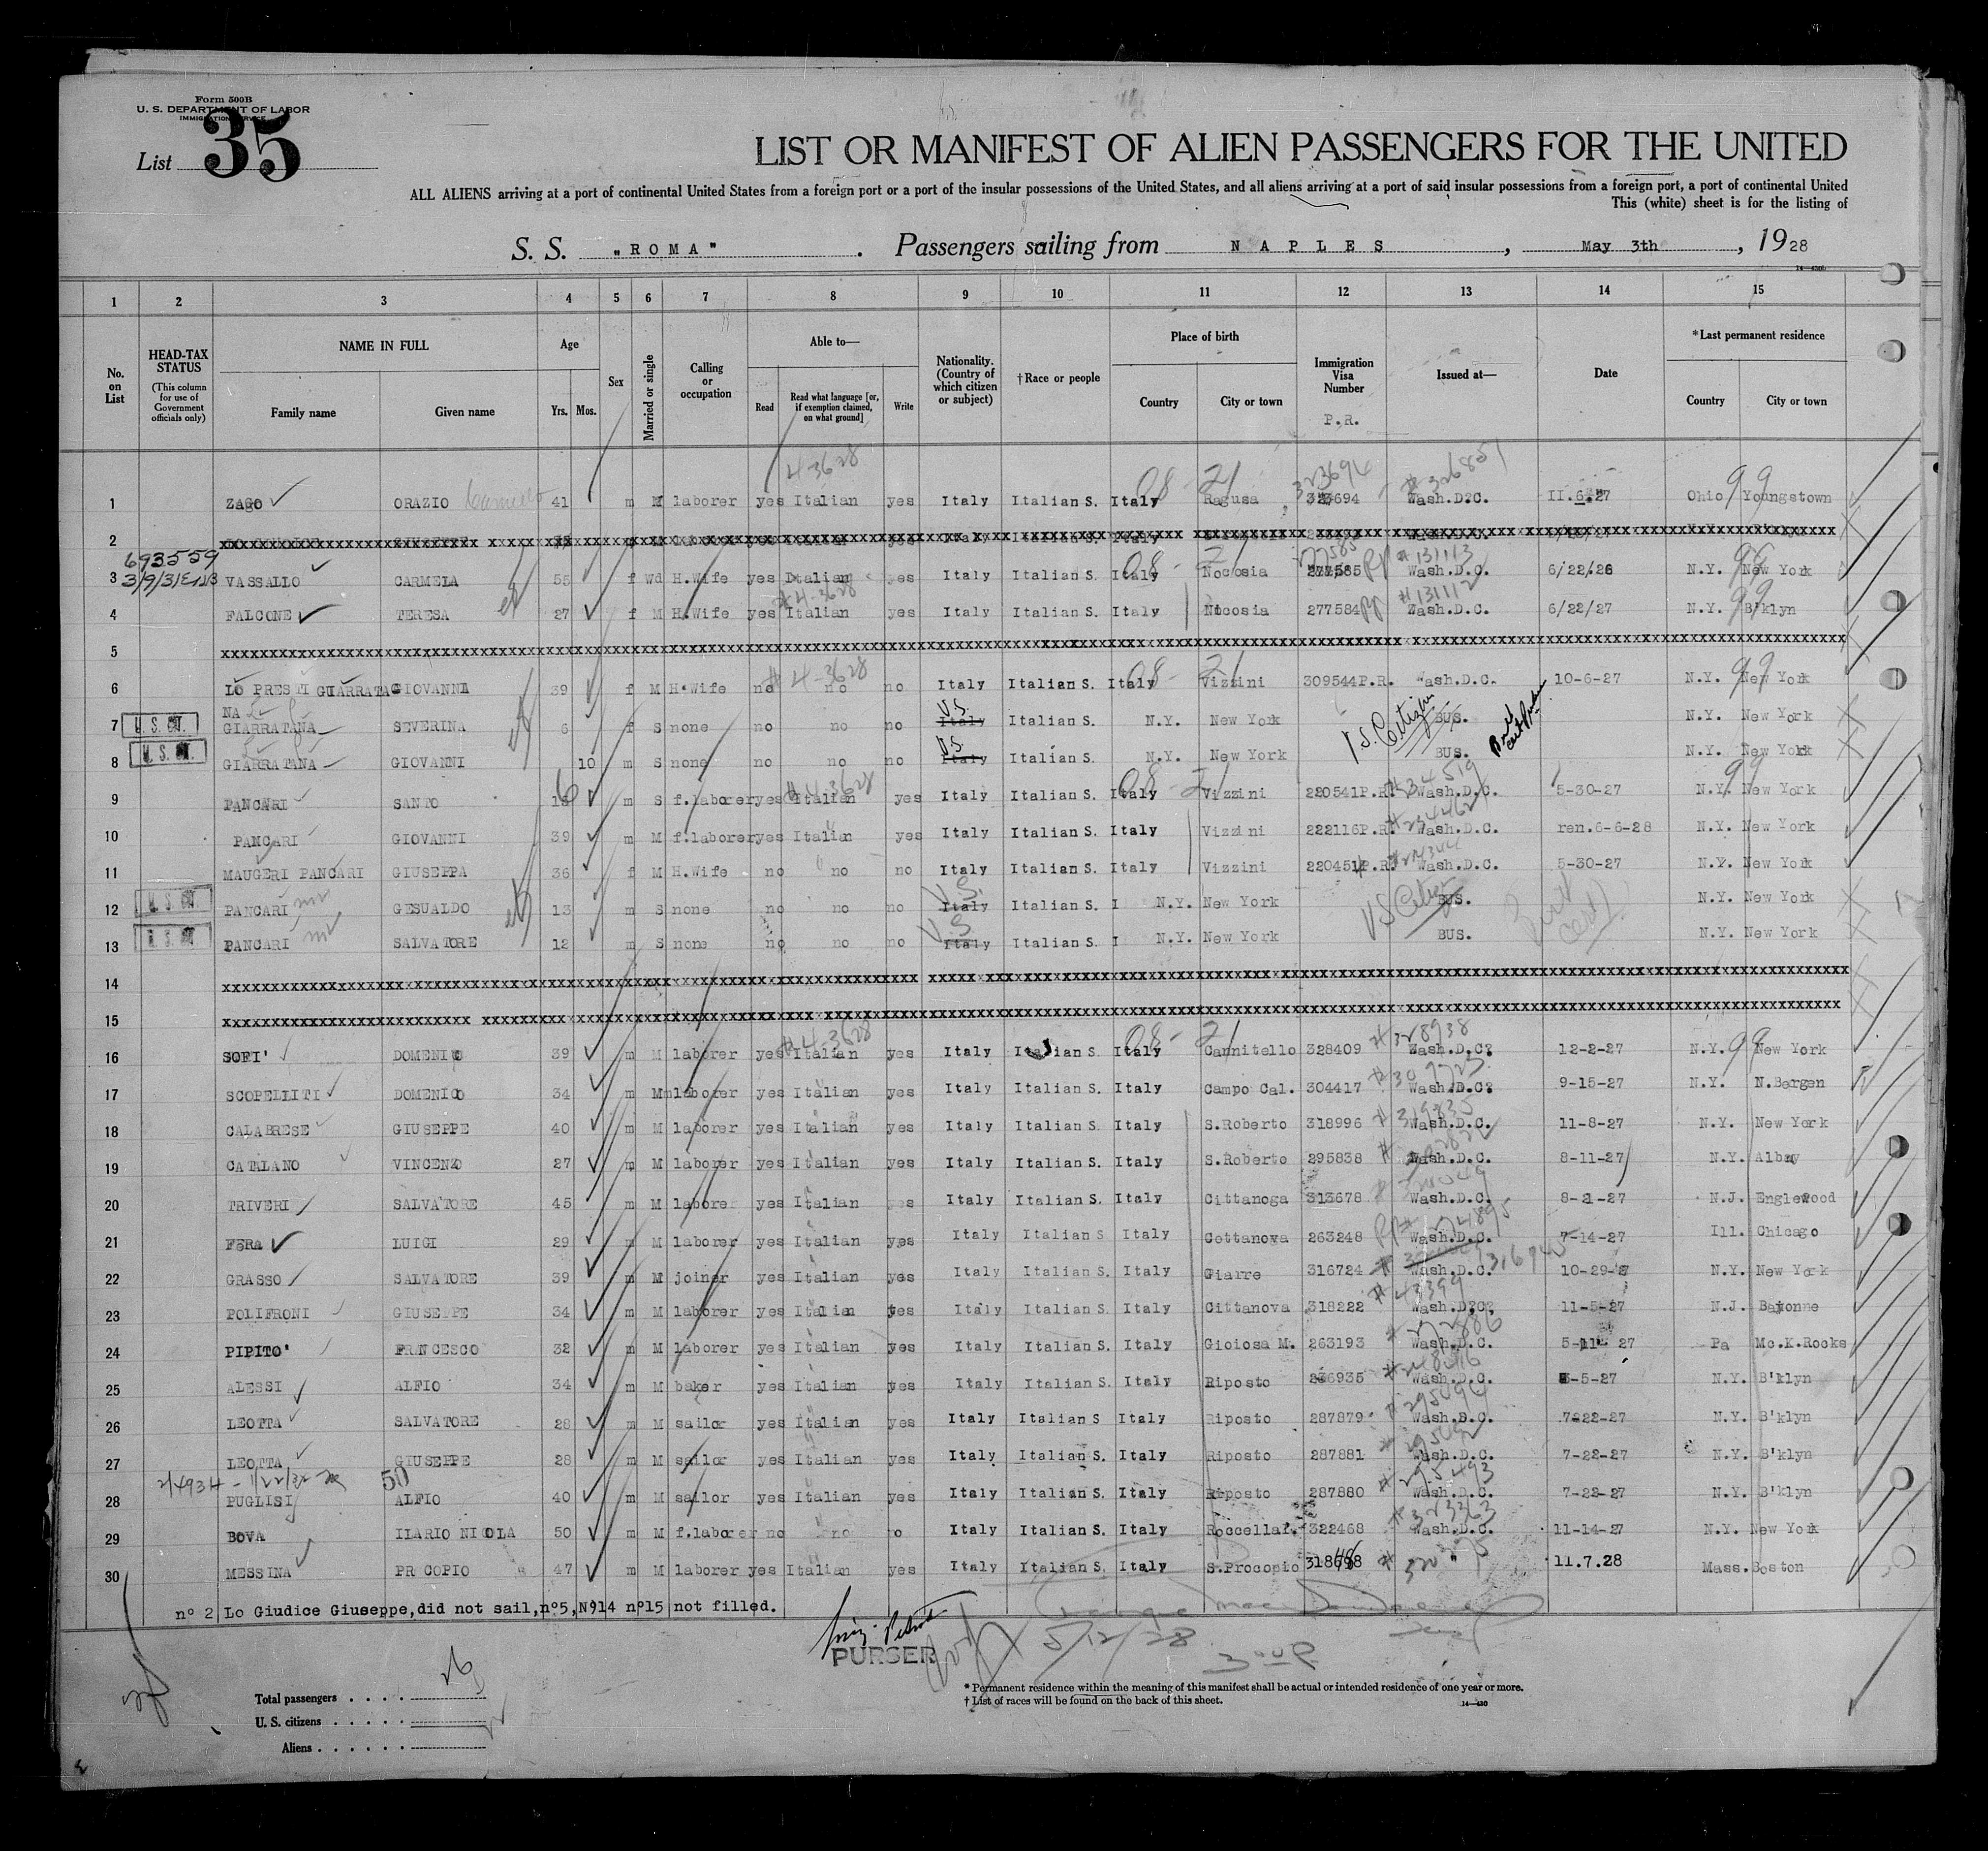 Form 500B
U. S. DEPARTMENT OF LABOR
IMMIGRATION SERVICE
List 35
LIST OR MANIFEST OF ALIEN PASSENGERS FOR THE UNITED
ALL ALIENS arriving at a port of continental United States from a foreign port or a port of the insular possessions of the United States, and all aliens arriving at a port of said insular possessions from a foreign port, a port of continental United
This (white) sheet is for the listing of
S. S. "ROMA". Passengers sailing from NAPLES, May 3th, 1928
1 2 3 4 5 6 7 8 9 10 11 12 13 14 15
No. on List
HEAD-TAX STATUS (This column for use of Government officials only)
NAME IN FULL
Family name Given name
Age
Yrs. Mos.
Sex
Married or single
Calling or occupation
Able to—
Read Read what language [or, if exemption claimed, on what ground] Write
Nationality. (Country of which citizen or subject)
†Race or people
Place of birth
Country City or town
Immigration Visa Number
P.R.
Issued at—
Date
*Last permanent residence
Country City or town
4-3628 323694 #326851
1 ZAGO ORAZIO 41 m M laborer yes Italian yes Italy Italian S. Italy Ragusa 323694 Wash.D.C. II.6.27 Ohio Youngstown
2
693559 #131113
3 VASSALLO CARMELA 55 f Wd H.Wife yes Italian yes Italy Italian S. Italy Nocosia 277585 Wash.D.C. 6/22/26 N.Y. New York
#4-3628 #131112
4 FALCONE TERESA 27 f M H.Wife yes Italian yes Italy Italian S. Italy Nocosia 277584 Wash.D.C. 6/22/27 N.Y. B'klyn
5
#4-3628 08-21 99
6 LO PRESTI GIARRATA GIOVANNA 39 f M H.Wife no no no Italy Italian S. Italy Vizzini 309544P.R. Wash.D.C. 10-6-27 N.Y. New York
NA
7 U.S. CIT. GIARRATANA SEVERINA 6 f S none no no no U.S. Italy Italian S. N.Y. New York U.S. Citizen BUS. N.Y. New York
8 U.S. CIT. GIARRATANA GIOVANNI 10 m S none no no no U.S. Italy Italian S. N.Y. New York BUS. N.Y. New York
#4-3628 08-21 99
9 PANCARI SANTO 16 m S f.laborer yes Italian yes Italy Italian S. Italy Vizzini 220541P.R. Wash.D.C. 5-30-27 N.Y. New York
10 PANCARI GIOVANNI 39 m M f.laborer yes Italian yes Italy Italian S. Italy Vizzini 222116P.R. Wash.D.C. ren.6-6-28 N.Y. New York
11 MAUGERI PANCARI GIUSEPPA 36 f M H.Wife no no no Italy Italian S. Italy Vizzini 220451P.R. Wash.D.C. 5-30-27 N.Y. New York
12 U.S. CIT. PANCARI GESUALDO 13 m S none no no no U.S. Italy Italian S. I N.Y. New York U.S. Citiz BUS. N.Y. New York
13 U.S. CIT. PANCARI SALVATORE 12 m S none no no no U.S. Italy Italian S. I N.Y. New York BUS. N.Y. New York
14
15
#4-3628 08-21 #328938 99
16 SOFI' DOMENICO 39 m M laborer yes Italian yes Italy Italian S. Italy Cannitello 328409 Wash.D.C. 12-2-27 N.Y. New York
17 SCOPELLITI DOMENICO 34 m M laborer yes Italian yes Italy Italian S. Italy Campo Cal. 304417 Wash.D.C. 9-15-27 N.Y. N.Bergen
18 CALABRESE GIUSEPPE 40 m M laborer yes Italian yes Italy Italian S. Italy S.Roberto 318996 Wash.D.C. 11-8-27 N.Y. New York
19 CATALANO VINCENZO 27 m M laborer yes Italian yes Italy Italian S. Italy S.Roberto 295838 Wash.D.C. 8-11-27 N.Y. Albay
20 TRIVERI SALVATORE 45 m M laborer yes Italian yes Italy Italian S. Italy Cittanoga 313678 Wash.D.C. N.J. Englewood
21 FERA LUIGI 29 m M laborer yes Italian yes Italy Italian S Italy Cottanova 263248 Wash.D.C. 7-14-27 Ill. Chicago
22 GRASSO SALVATORE 39 m M joiner yes Italian yes Italy Italian S. Italy Giarre 316724 Wash.D.C. 10-29-27 N.Y. New York
#43399
23 POLIFRONI GIUSEPPE 34 m M laborer yes Italian yes Italy Italian S. Italy Cittanova 318222 Wash.D.C. 11-5-27 N.J. Bayonne
24 PIPITO' FRNCESCO 32 m M laborer yes Italian yes Italy Italian S. Italy Gioiosa M. 263193 Wash.D.C. 5-11-27 Pa Mc.K.Rocks
25 ALESSI ALFIO 34 m M baker yes Italian yes Italy Italian S. Italy Riposto 236935 Wash.D.C. N.Y. B'klyn
26 LEOTTA SALVATORE 28 m M sailor yes Italian yes Italy Italian S Italy Riposto 287879 Wash.D.C. 7-22-27 N.Y. B'klyn
27 LEOTTA GIUSEPPE 28 m M sailor yes Italian yes Italy Italian S. Italy Riposto 287881 Wash.D.C. 7-22-27 N.Y. B'klyn
50 #295493
28 PUGLISI ALFIO 40 m M sailor yes Italian yes Italy Italian S. Italy Riposto 287880 Wash.D.C. 7-22-27 N.Y. B'klyn
#323363
29 BOVA ILARIO NICOLA 50 m M f.laborer no no no Italy Italian S. Italy Roccella 322468 Wash.D.C. 11-14-27 N.Y. New York
30 MESSINA PR COPIO 47 m M laborer yes Italian yes Italy Italian S. Italy S.Procopio " 11.7.28 Mass. Boston
nº 2 Lo Giudice Giuseppe,did not sail,nº5,Nº14 nº15 not filled.
PURSER
5/12/28
Total passengers . . . . 26
U. S. citizens . . . . .
Aliens . . . . . .
* Permanent residence within the meaning of this manifest shall be actual or intended residence of one year or more.
† List of races will be found on the back of this sheet.